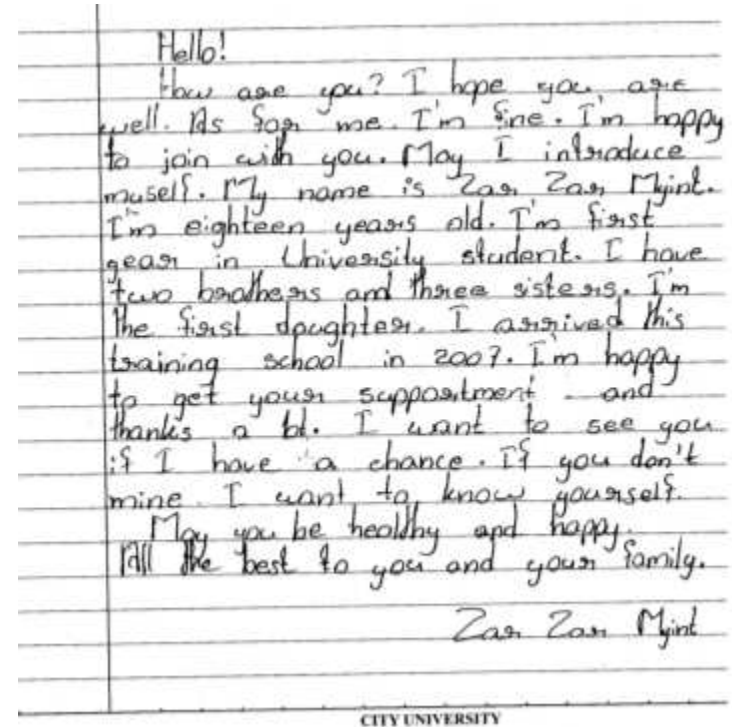 Hello!
How are you? I hope you are
well. As for me. I'm fine. I'm happy
to join with you. May I introduce
muself. My name is Zar Zar Myint.
I'm eighteen years old. I'm first
year in University student. I have
two brothers and three sisters. I'm
the first daughter. I arrived this
training school in 2007. I'm happy
to get your supportment and
thanks a lot. I want to see you
if I have a chance. If you don't
mine I want to know yourself.
May you be healthy and happy.
All the best to you and your family.
Zar Zar Myint
CITY UNIVERSITY